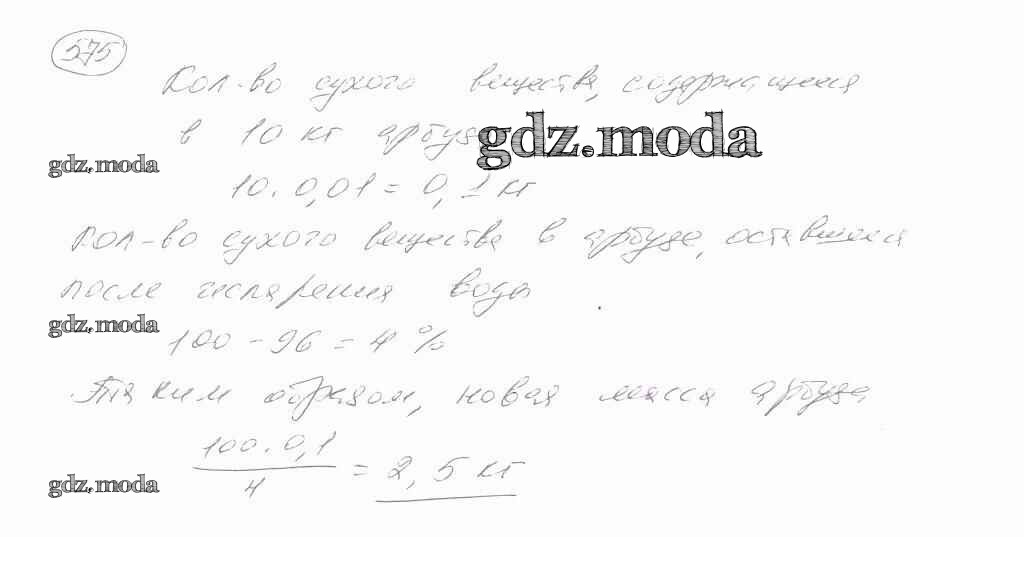 575
Кол-во сухого вещества, содержащееся
в 10 кг арбуза gdz.moda
gdz.moda
10 · 0,01 = 0,1 кг
Кол-во сухого вещества в арбузе, оставшееся
после испарения воды
gdz.moda
100 - 96 = 4 %
Таким образом, новая масса арбуза
100 · 0,1
= 2,5 кг
4
gdz.moda